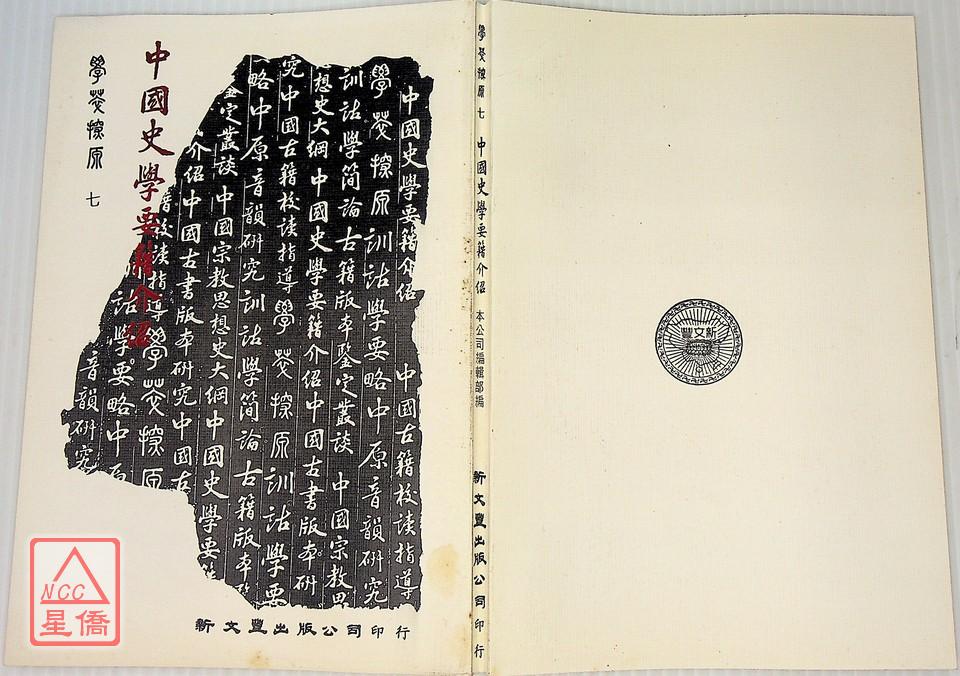 中國史學要籍介紹
學茭撩原 七
中國史學要籍介紹 中國古籍校读指導
學茭撩原 訓詁學要略 中原音韻研究
訓詁學简論 古籍版本鑒定叢談 中國宗教思
想史大綱 中國史學要籍介紹 中國古書版本研
究 中國古籍校读指導 學茭撩原 訓詁學要
略 中原音韻研究 訓詁學简論 古籍版本
定叢談 中國宗教思想史大綱 中國史學要
介紹 中國古書版本研究 中國古
籍校读指導 學茭撩原
詁學要略 中原
音韻研究
新文豐出版公司印行
學茭撩原 七 中國史學要籍介紹 本公司編輯部編 新文豐出版公司印行
豐文新
NCC
星僑